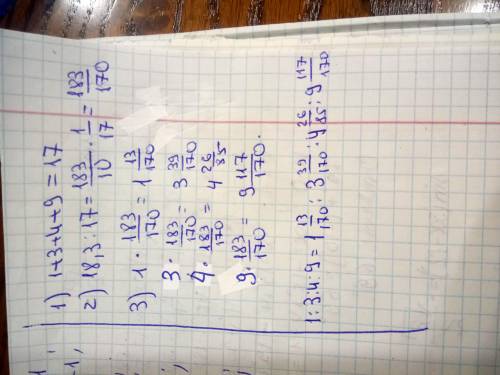 1) 1+3+4+9=17
2) 18,3:17=183/10·1/17=183/170
3) 1·183/170=1 13/170
3·183/170=3 39/170
4·183/170=4 26/85
9·183/170=9 117/170.
1:3:4:9=1 13/170:3 39/170:4 26/85:9 117/170